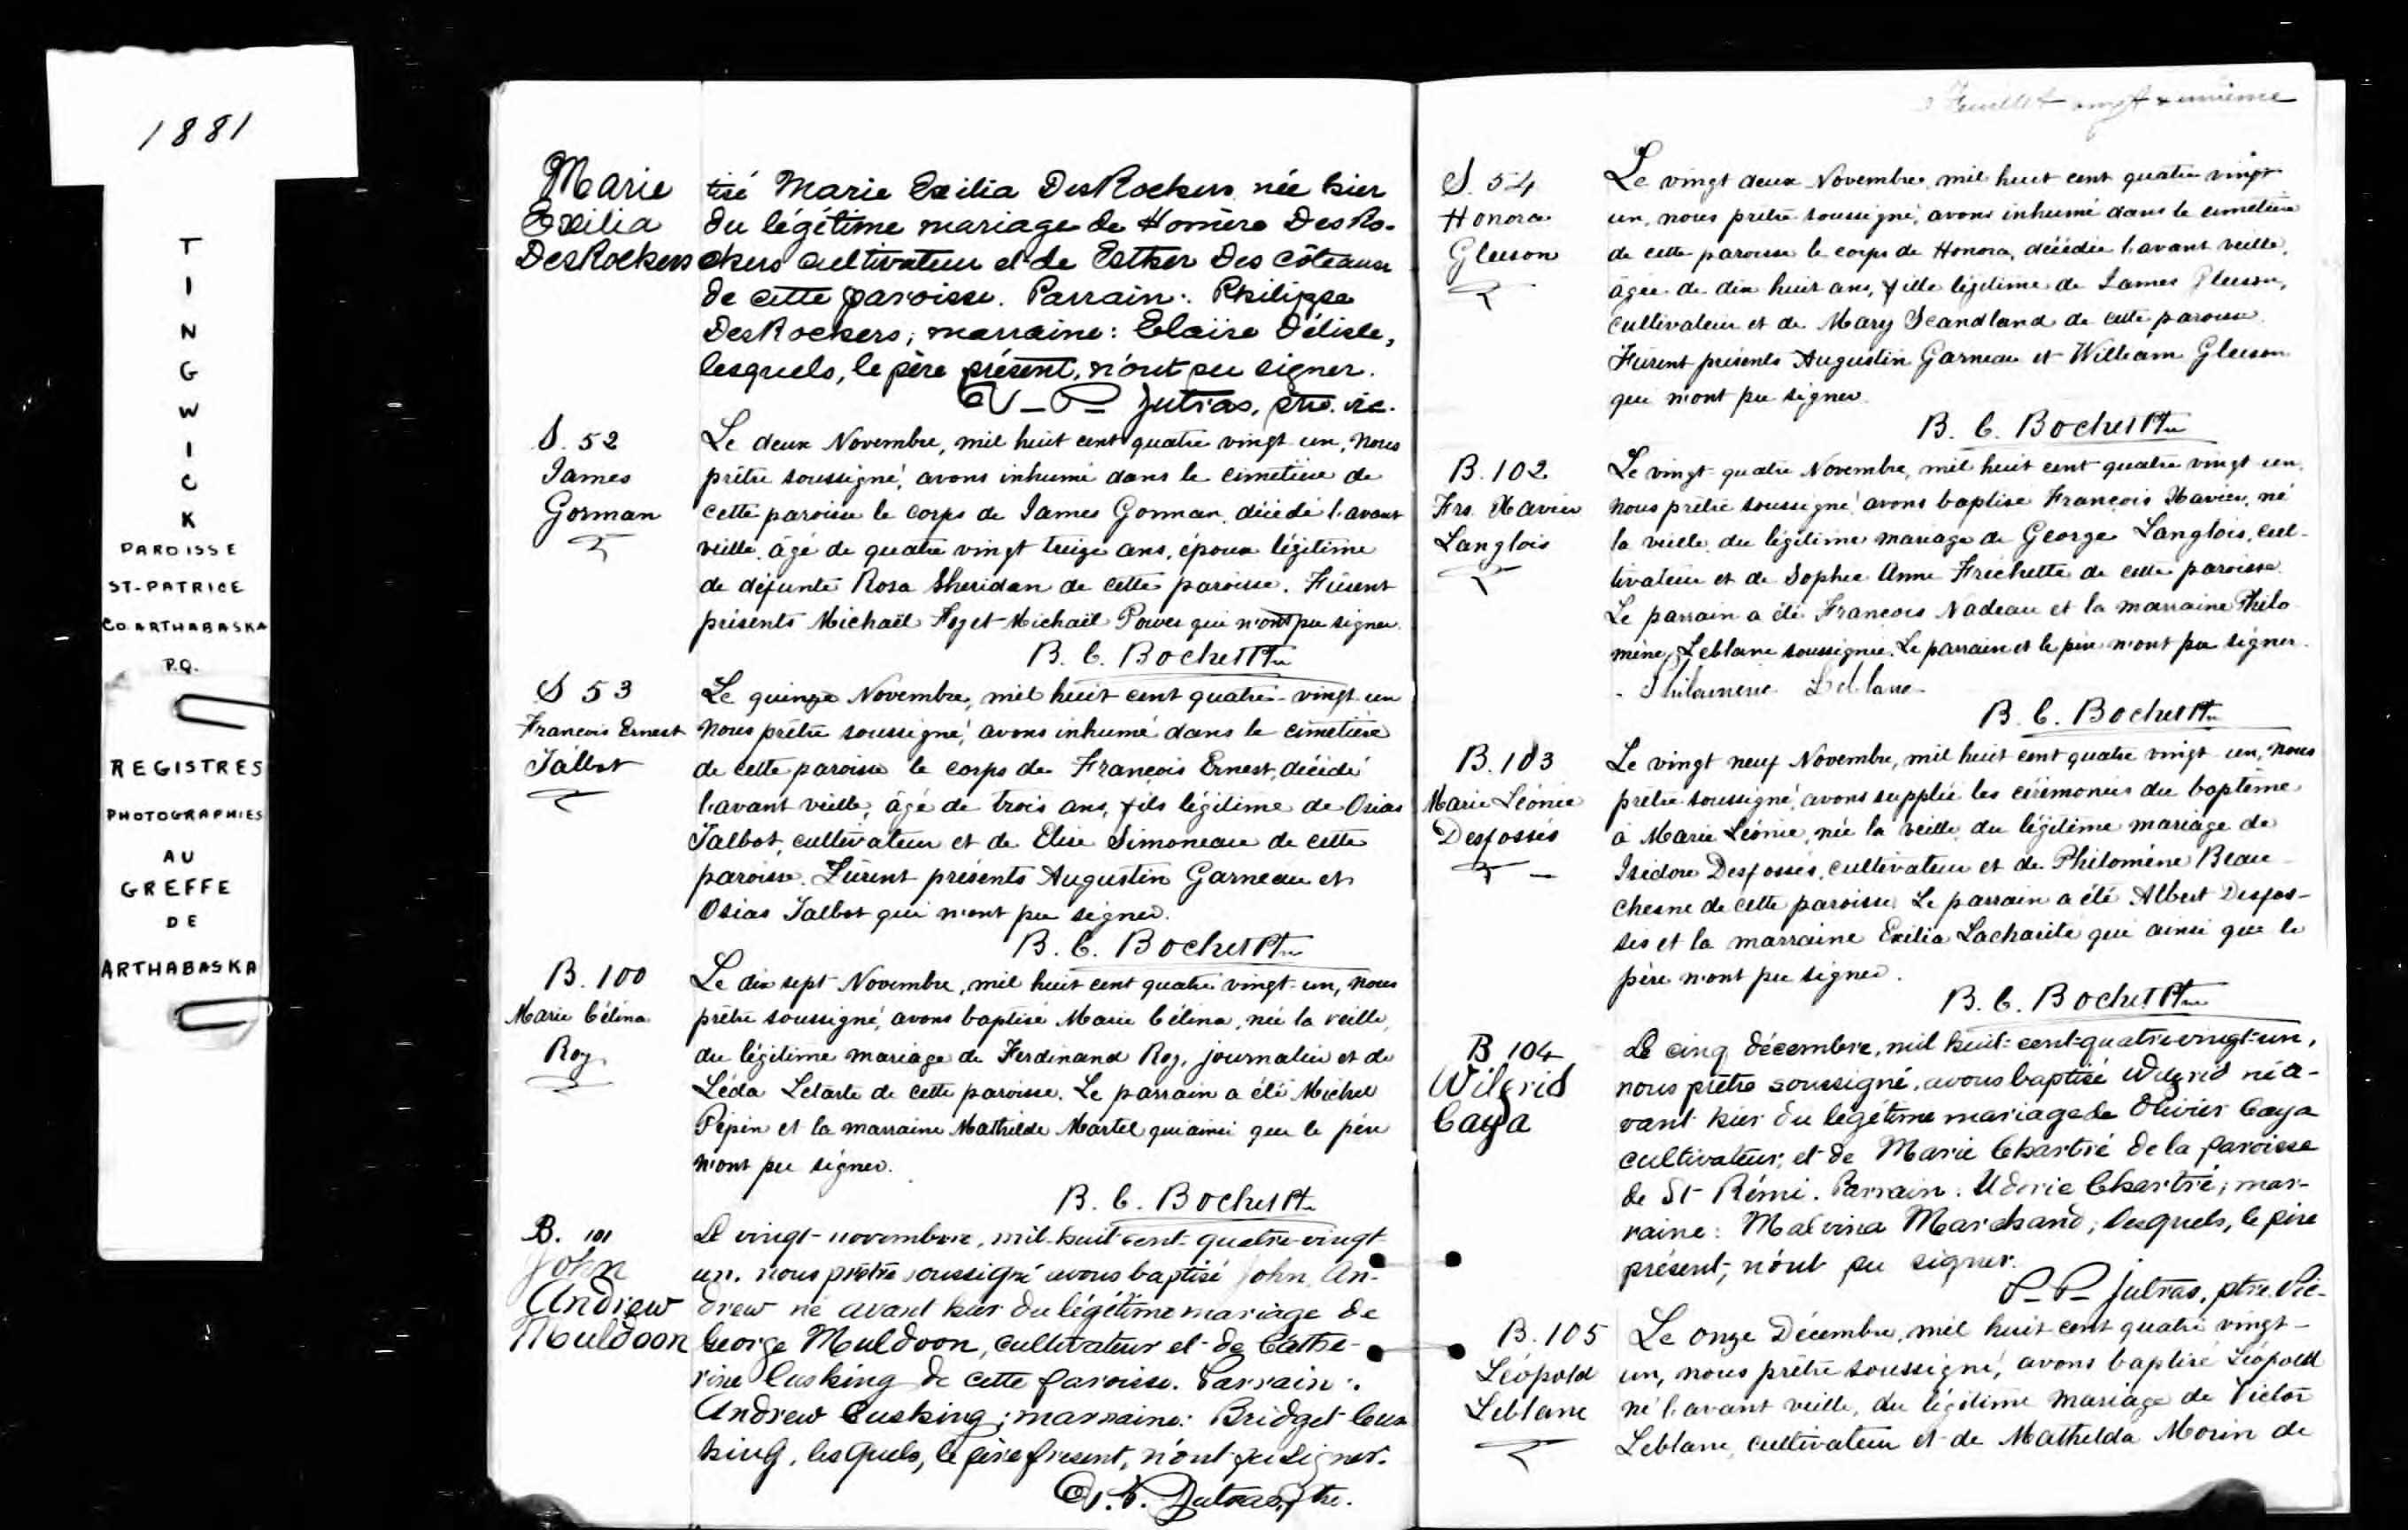 1881
TINGWICK
PAROISSE
ST-PATRICE
CO. ARTHABASKA
P.Q.
REGISTRES
PHOTOGRAPHIES
AU
GREFFE
DE
ARTHABASKA
Marie
Exilia
DesRochers
tisé Marie Exilia DesRochers née hier
du légitime mariage de Homère DesRo-
chers cultivateur et de Esther Des côteaux
de cette paroisse. Parrain: Philippe
DesRochers; marraine: Elaïse Délisle,
lesquels, le père présent, n'ont pu signer.
Jutras, ptre. vic.
S. 52
James
Gorman
Le deux Novembre, mil huit cent quatre vingt un, nous
prêtre soussigné, avons inhumé dans le cimetière de
cette paroisse le corps de James Gorman, décédé l'avant
veille, âgé de quatre vingt treize ans, époux légitime
de défunte Rosa Sheridan de cette paroisse. Furent
présents Michaël Foy et Michaël Power qui n'ont pu signer.
B. C. Bochet Ptre
S 53
François Ernest
Talbot
Le quinze Novembre, mil huit cent quatre-vingt un
nous prêtre soussigné, avons inhumé dans le cimetière
de cette paroisse le corps de François Ernest, décédé
l'avant veille, âgé de trois ans, fils légitime de Osias
Talbot, cultivateur et de Elise Simoneau de cette
paroisse. Furent présents Augustin Garneau et
Osias Talbot qui n'ont pu signer.
B. C. Bochet Ptre
B. 100
Marie Célina
Roy
Le dix sept Novembre, mil huit cent quatre vingt-un, nous
prêtre soussigné, avons baptisé Marie Célina, née la veille,
du légitime mariage de Ferdinand Roy, journalier et de
Léda Letarte de cette paroisse. Le parrain a été Michel
Pepin et la marraine Mathilde Martel qui ainsi que le père
n'ont pu signer.
B. C. Bochet Ptre
B. 101
John
Andrew
Muldoon
Le vingt-novembre, mil-huit-cent-quatre-vingt
un, nous prêtre soussigné avons baptisé John An-
drew né avant hier du légitime mariage de
George Muldoon, cultivateur et de Cathe-
rine Cushing de cette paroisse. Parrain:
Andrew Cushing; marraine: Bridget Cus
hing, lesquels, le père présent, n'ont pu signer.
Jutras, Ptre.
Feuillet
S. 54
Honora
Gleeson
Le vingt deux Novembre, mil huit cent quatre vingt
un, nous prêtre soussigné, avons inhumé dans le cimetière
de cette paroisse le corps de Honora, décédée l'avant veille,
âgée de dix huit ans, fille légitime de James Gleeson,
cultivateur et de Mary Scandland de cette paroisse.
Furent présents Augustin Garneau et William Gleeson
qui n'ont pu signer.
B. C. Bochet Ptre
B. 102
Frs. Xavier
Langlois
Le vingt-quatre Novembre, mil huit cent quatre vingt un,
nous prêtre soussigné avons baptisé François Xavier, né
la veille, du légitime mariage de George Langlois, cul-
tivateur et de Sophie Anne Fréchette de cette paroisse.
Le parrain a été François Nadeau et la marraine Philo
mène Leblanc soussignée. Le parrain et le père n'ont pu signer.
Philomene Leblanc
B. C. Bochet Ptre
B. 103
Marie Léonie
Desfossés
Le vingt neuf Novembre, mil huit cent quatre vingt-un, nous
prêtre soussigné, avons supplié les cérémonies du baptême
à Marie Léonie, née la veille, du légitime mariage de
Isidore Desfossés, cultivateur et de Philomène Beau
chesne de cette paroisse. Le parrain a été Albert Desfos-
sés et la marraine Exilia Lacharité qui ainsi que le
père n'ont pu signer.
B. C. Bochet Ptre
B 104
Wilfrid
Caya
Le cinq décembre, mil huit-cent-quatre-vingt-un,
nous prêtre soussigné, avons baptisé Wilfrid né a-
vant hier du légitime mariage de Olivier Caya
cultivateur, et de Marie Chartré de la paroisse
de St Rémi. Parrain: Uderic Chartré; mar-
raine: Malvina Marchand; lesquels, le père
présent, n'ont pu signer.
Jutras, ptre. Vic.
B. 105
Léopold
Leblanc
Le onze Décembre, mil huit cent quatre vingt-
un, nous prêtre soussigné, avons baptisé Léopold
né l'avant veille, du légitime mariage de Victor
Leblanc, cultivateur et de Mathelda Morin de